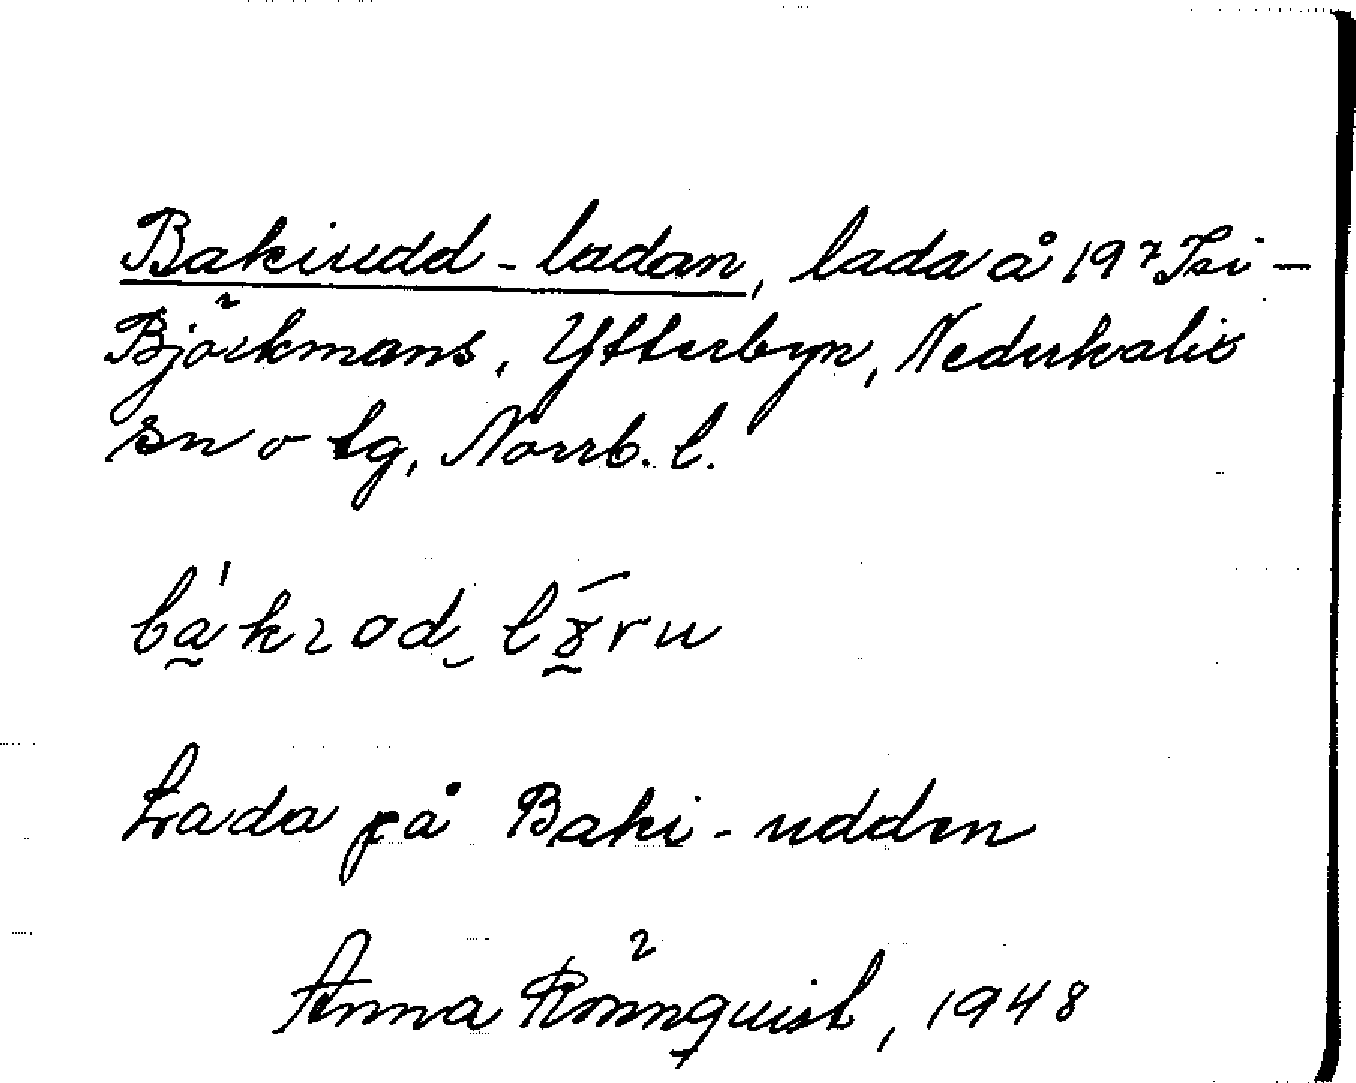 Bakiudd-ladan, lada å 19² Isi-
Björkmans, Ytterbyn, Nederkalix
sn o tg, Norrb. l.
Lada på Baki-udden
Anna Rönnquist, 1948